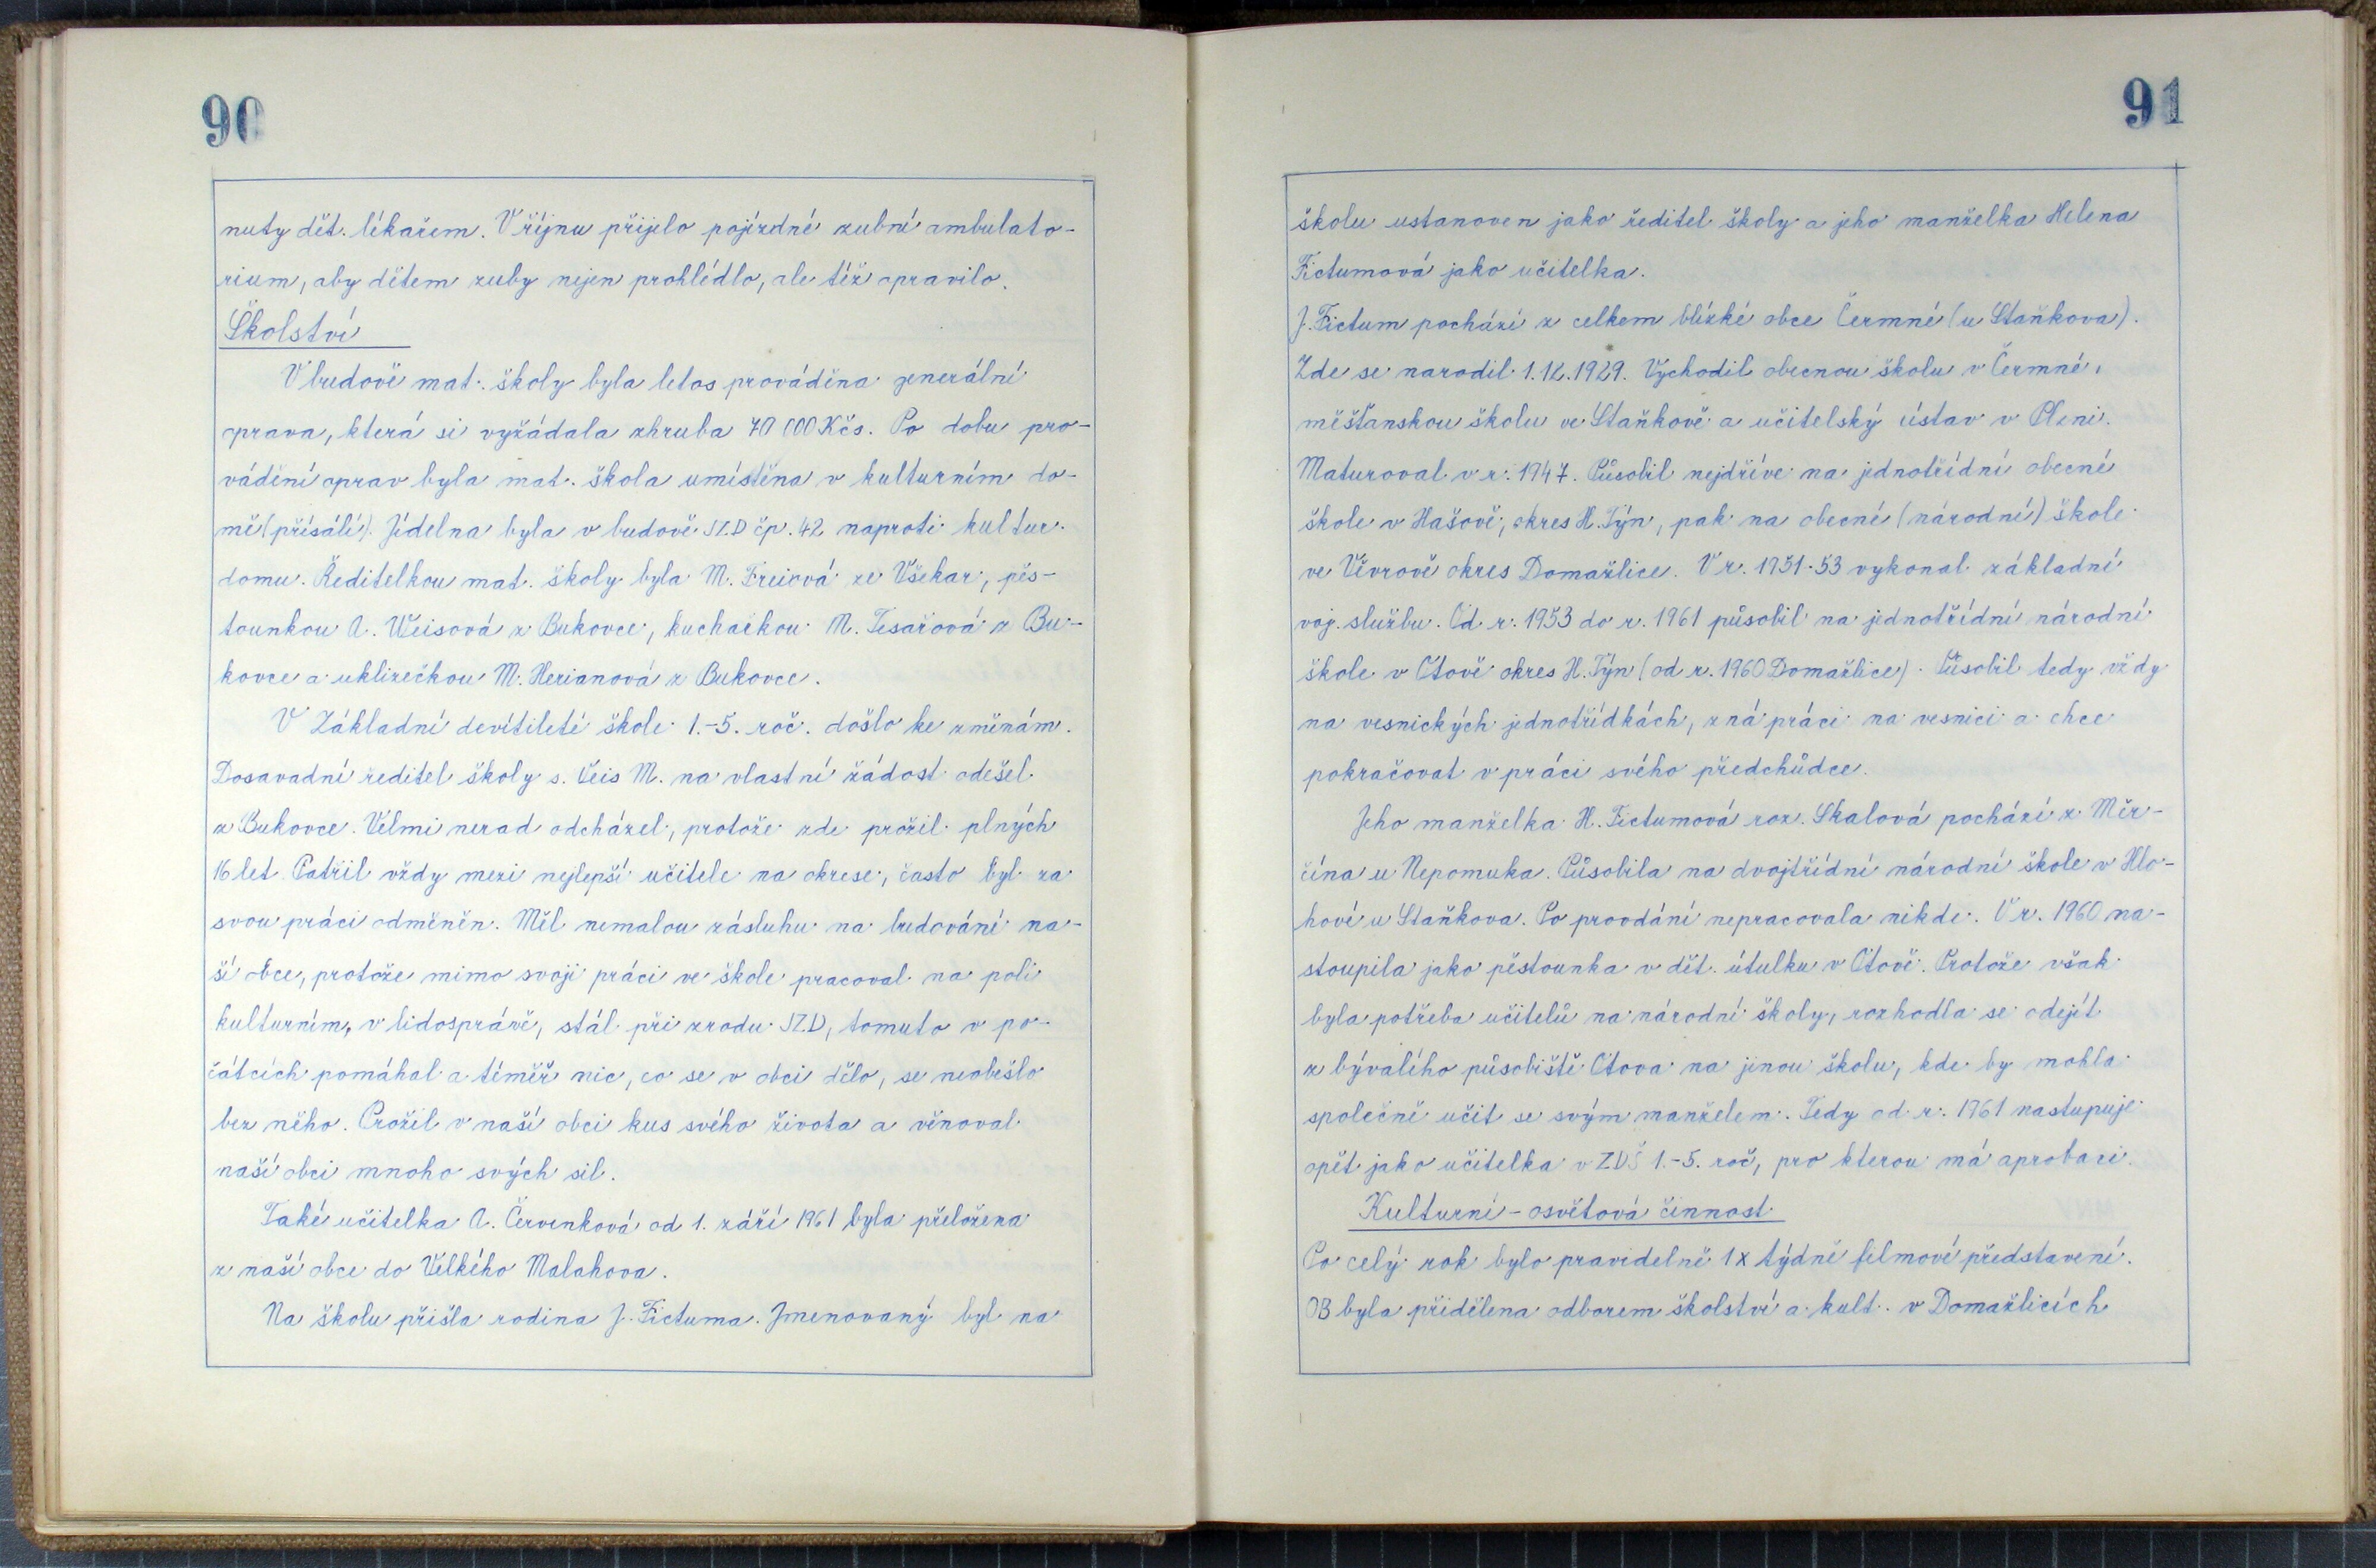 90
nuty dět. lékařem. V říjnu přijelo pojízdné zubní ambulato-
rium, aby dětem zuby nejen prohlédlo, ale též opravilo.
Školství
V budově mat. školy byla letos prováděna generální
oprava, která si vyžádala zhruba 70 000 Kčs. Po dobu pro-
vádění oprav byla mat. škola umístěna v kulturním do-
mě (přísálí). Jídelna byla v budově JZD čp. 42 naproti kultur.
domu. Ředitelkou mat. školy byla M. ze Všekar, pěs-
tounkou A. Weisová z Bukovce, kuchařkou M. Tesařová z Bu-
kovce a uklizečkou M. Herianová z Bukovce.
V Základní devítileté škole 1.-5. roč. došlo ke změnám.
Dosavadní ředitel školy s. Veis M. na vlastní žádost odešel
z Bukovce. Velmi nerad odcházel, protože zde prožil plných
16 let. Patřil vždy mezi nejlepší učitele na okrese, často byl za
svou práci odměněn. Měl nemalou zásluhu na budování na-
ší obce, protože mimo svoji práci ve škole pracoval na poli
kulturním, v lidosprávě, stál při zrodu JZD, tomuto v po-
čátcích pomáhal a téměř nic, co se v obci dělo, se neobešlo
bez něho. Prožil v naší obci kus svého života a věnoval
naší obci mnoho svých sil.
Také učitelka A. Červenková od 1. září 1961 byla přeložena
z naší obce do Velkého Malahova.
Na školu přišla rodina J. Fictuma. Jmenovaný byl na
91
školu ustanoven jako ředitel školy a jeho manželka Helena
Fictumová jako učitelka.
J. Fictum pochází z celkem blízké obce Čermné (u Staňkova).
Zde se narodil 1.12.1929. Vychodil obecnou školu v Čermné,
měšťanskou školu ve Staňkově a učitelský ústav v Plzni.
Maturoval v r. 1947. Působil nejdříve na jednotřídní obecné
škole v Hašově, okres H. Týn, pak na obecné (národní) škole
ve Vévrově okres Domažlice. V r. 1951-53 vykonal základní
voj. službu. Od r. 1953 do r. 1961 působil na jednotřídní národní
škole v Otově okres H. Týn (od r. 1960 Domažlice). Působil tedy vždy
na vesnických jednotřídkách, zná práci na vesnici a chce
pokračovat v práci svého předchůdce.
Jeho manželka H. Fictumová roz. Skalová pochází z Měr-
čína u Nepomuka. Působila na dvojtřídní národní škole v Hlo-
hové u Staňkova. Po provdání nepracovala nikde. V r. 1960 na-
stoupila jako pěstounka v dět. útulku v Otově. Protože však
byla potřeba učitelů na národní školy, rozhodla se odejít
z bývalého působiště Otova na jinou školu, kde by mohla
společně učit se svým manželem. Tedy od r. 1961 nastupuje
opět jako učitelka v ZDŠ 1.-5. roč, pro kterou má aprobaci.
Kulturní - osvětová činnost
Po celý rok bylo pravidelně 1x týdně filmové představení.
OB byla přidělena odborem školství a kult. v Domažlicích